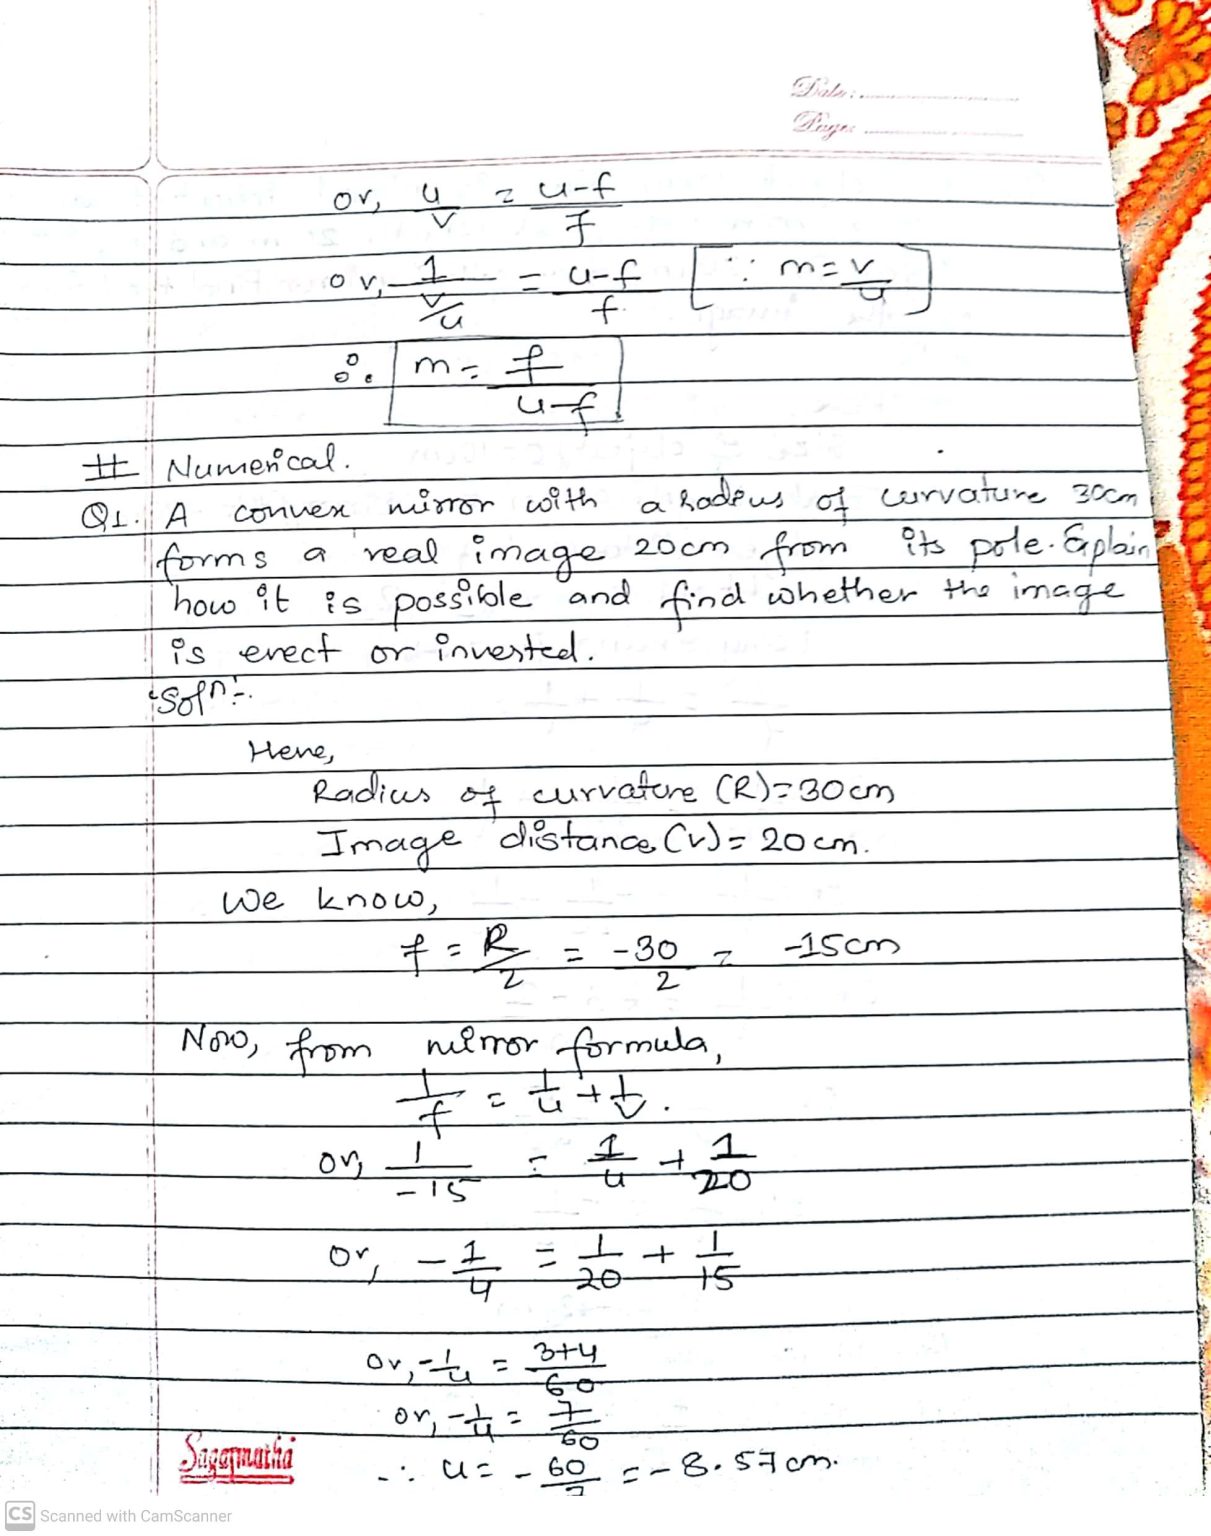 Date:
Page:
or, u/v = u-f/f
or, 1/(v/u) = u-f/f [∵ m=v/u]
∴ m = f/u-f
# Numerical.
Q1. A convex mirror with a radius of curvature 30cm
forms a real image 20cm from its pole. Explain
how it is possible and find whether the image
is erect or inverted.
Solⁿ:-
Here,
Radius of curvature (R)=30cm
Image distance (v)= 20cm.
We know,
f = R/2 = -30/2 = -15cm
Now, from mirror formula,
1/f = 1/u + 1/v.
or, 1/-15 = 1/u + 1/20
or, -1/u = 1/20 + 1/15
or, -1/u = 3+4/60
or, -1/u = 7/60
∴ u = -60/7 = -8.57cm.
Sagarmatha
CS Scanned with CamScanner